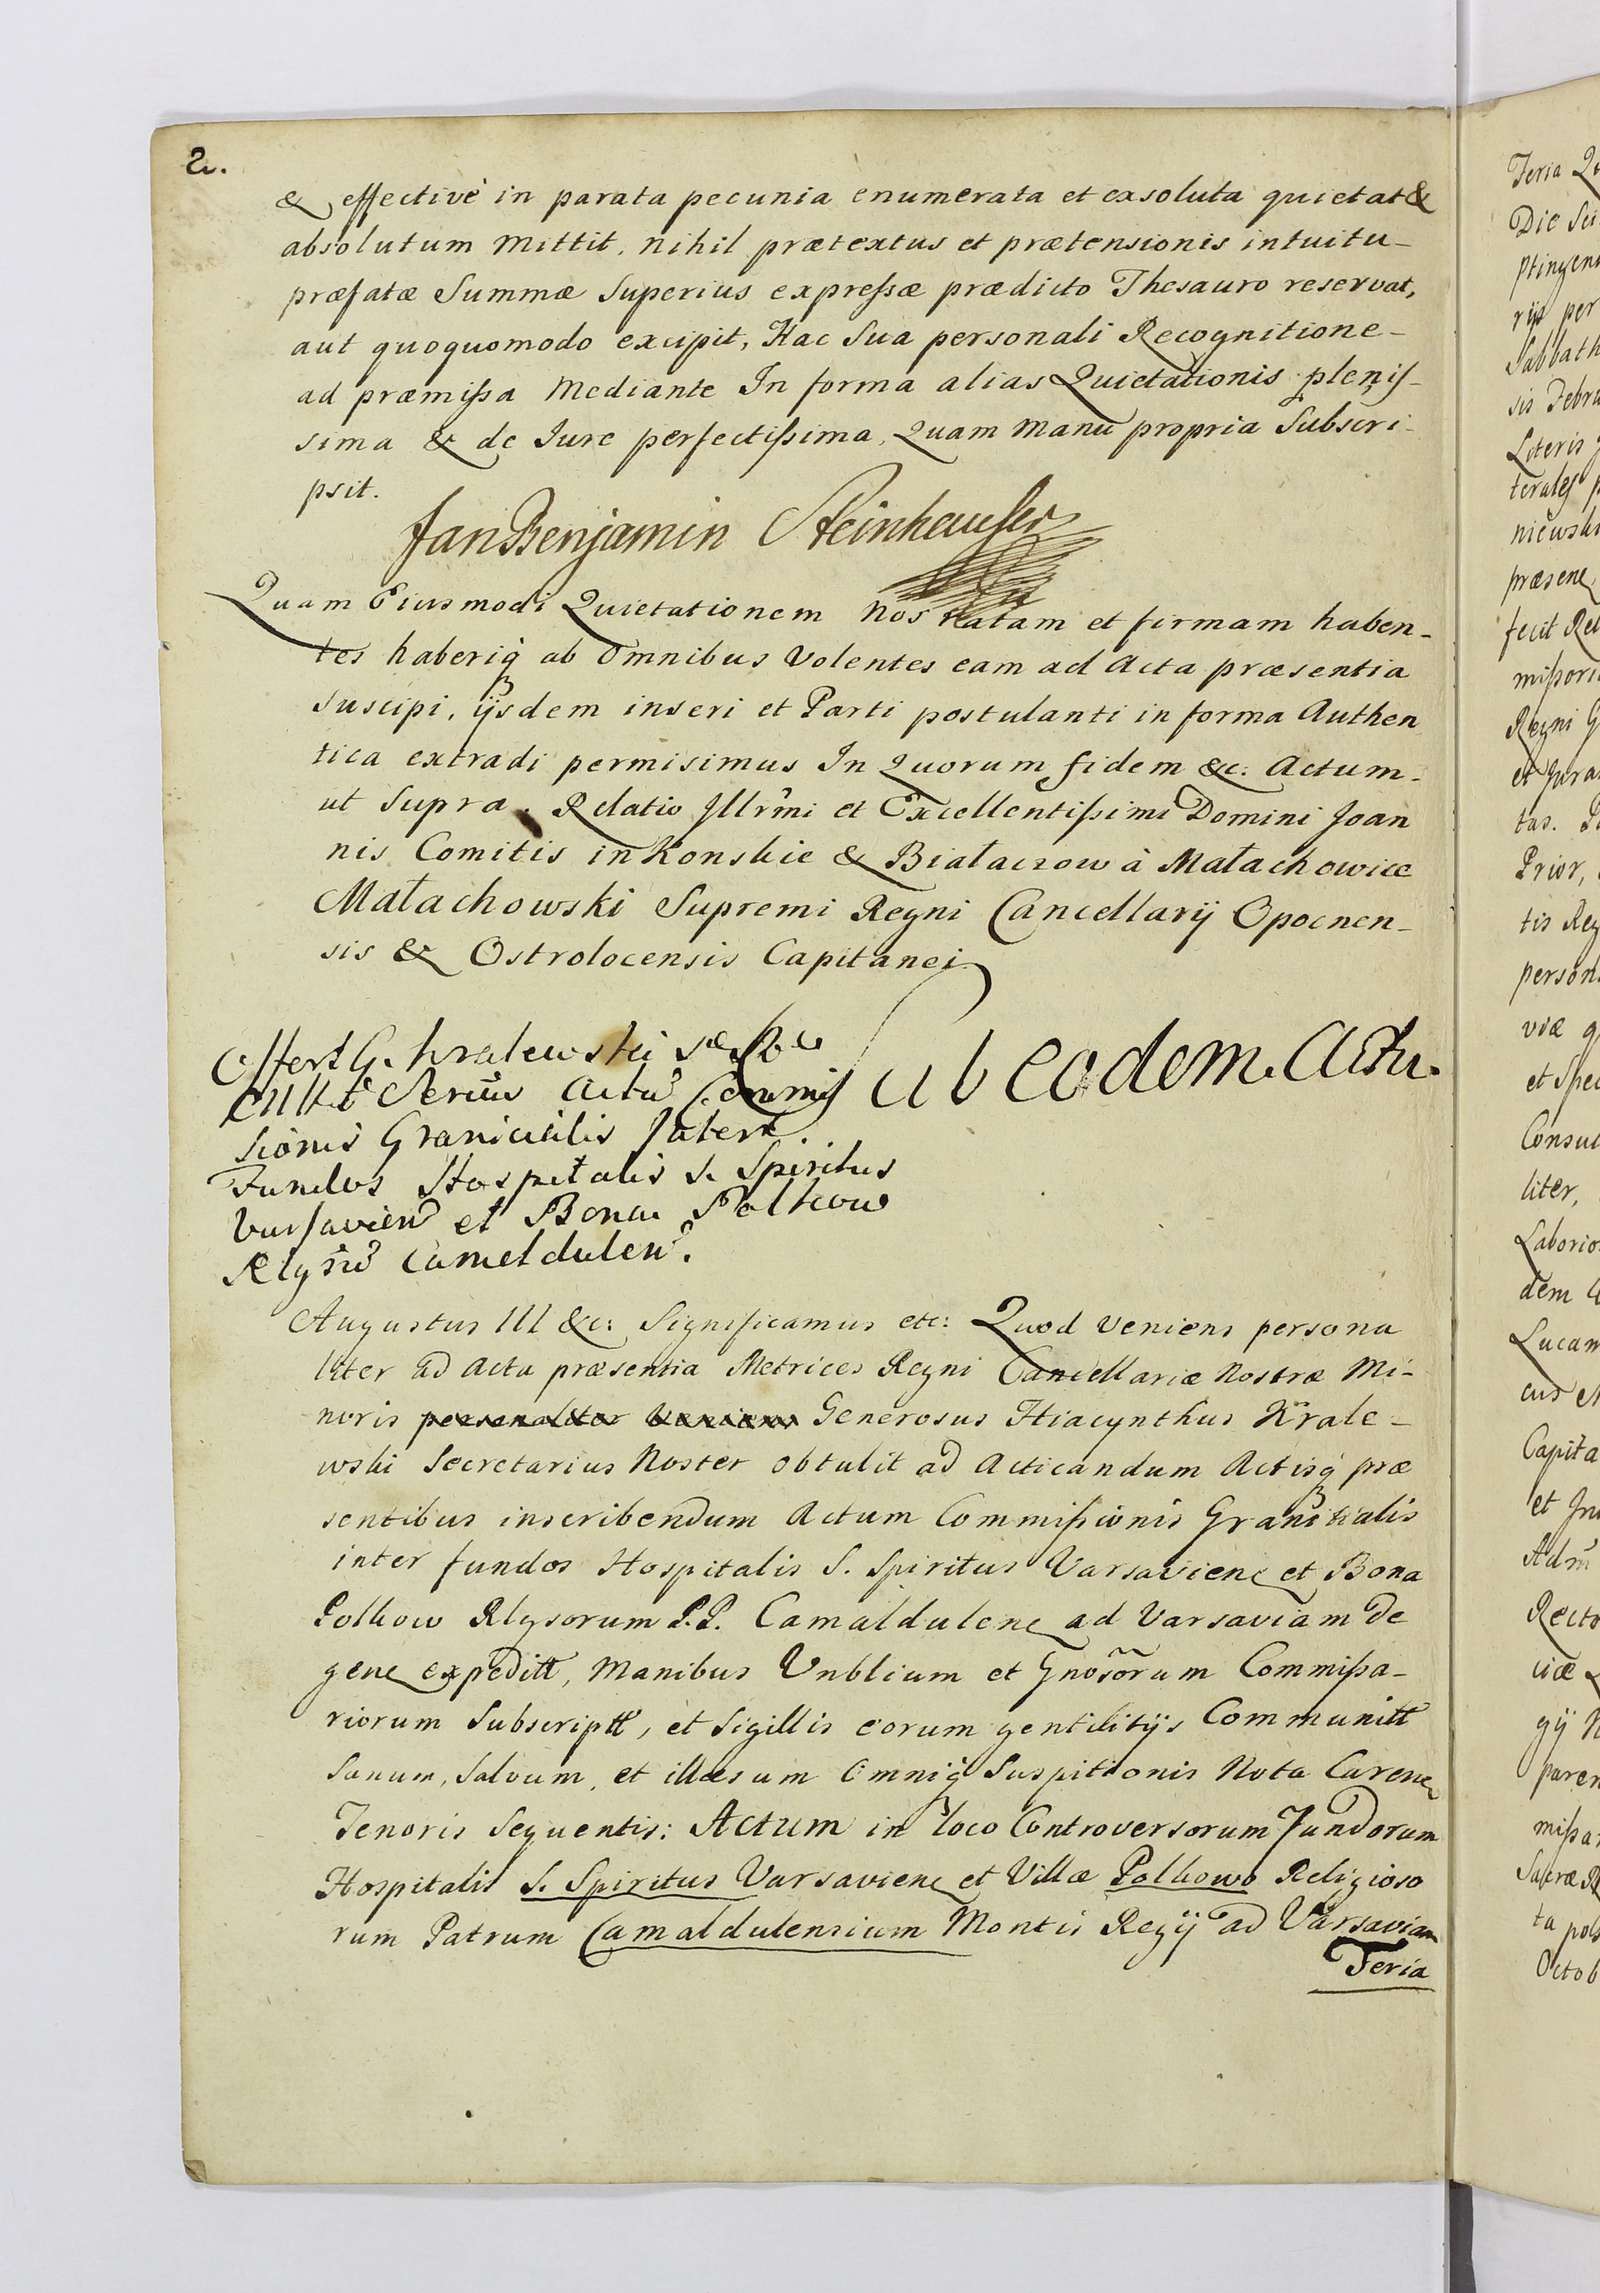 2.
& effectivè in parata pecunia enumerata et exsoluta quietat &
absolutum mittit, nihil prætextus et prætensionis intuitu-
præfatæ Summæ Superius expressæ prædicto Thesauro reservat,
aut quoquomodo excipit, Hac Sua personali Recognitione-
ad præmissa Mediante In forma alias Quietationis plenis-
sima & de Jure perfectissima, Quam Manu propria Subscri-
psit.
Jan Benjamin Steinhauser
Quam Eiusmodi Quietationem Nos ratam et firmam haben-
tes haberiq́ ab Omnibus Volentes eam ad Acta præsentia
suscipi, ijsdem inseri et Parti postulanti in forma Authen
tica extradi permisimus In Quorum fidem &c: Actum-
ut Supra. Relatio Jllrm̃i et Excellentissimi Domini Joan
nis Comitis in Konskie & Białaczow à Małachowice
Małachowski Supremi Regni Cancellarij Opocnen-
sis & Ostrolocensis Capitanei
Sub eodem Actu.
Offert G. Kralewski
Serius Actu Commis
sionis Granicialis Inter
Fundos Hospitalis S. Spiritus
Varsavien et Bona Polkow
Rlgsõr Cameldulen.
Augustus III &c: Significamus etc: Quod Veniens persona
liter ad Acta præsentia Metrices Regni Cancellariæ Nostræ Mi-
noris personaliter Veniens Generosus Hiacynthus Krale-
wski Secretarius Noster obtulit ad Acticandum Actisq́ præ
sentibus inscribendum Actum Commissionis Granitialis
inter fundos Hospitalis S. Spiritus Varsavien et Bona
Polkow Rlgsorum P.P. Camaldulen ad Varsaviam De
gen expeditt, Manibus Vnblium et Gnõsorum Commissa-
riorum Subscriptt, et Sigillis eorum gentilitijs Communitt
Sanum, Salvum, et illæsum Omniq́ Suspitionis Nota Caren
Tenoris Sequentis: Actum in loco Controversorum Fundorum
Hospitalis S. Spiritus Varsavien et Villæ Polkowo Religioso
rum Patrum Camaldulensium Montis Regij ad Varsaviam
Feria